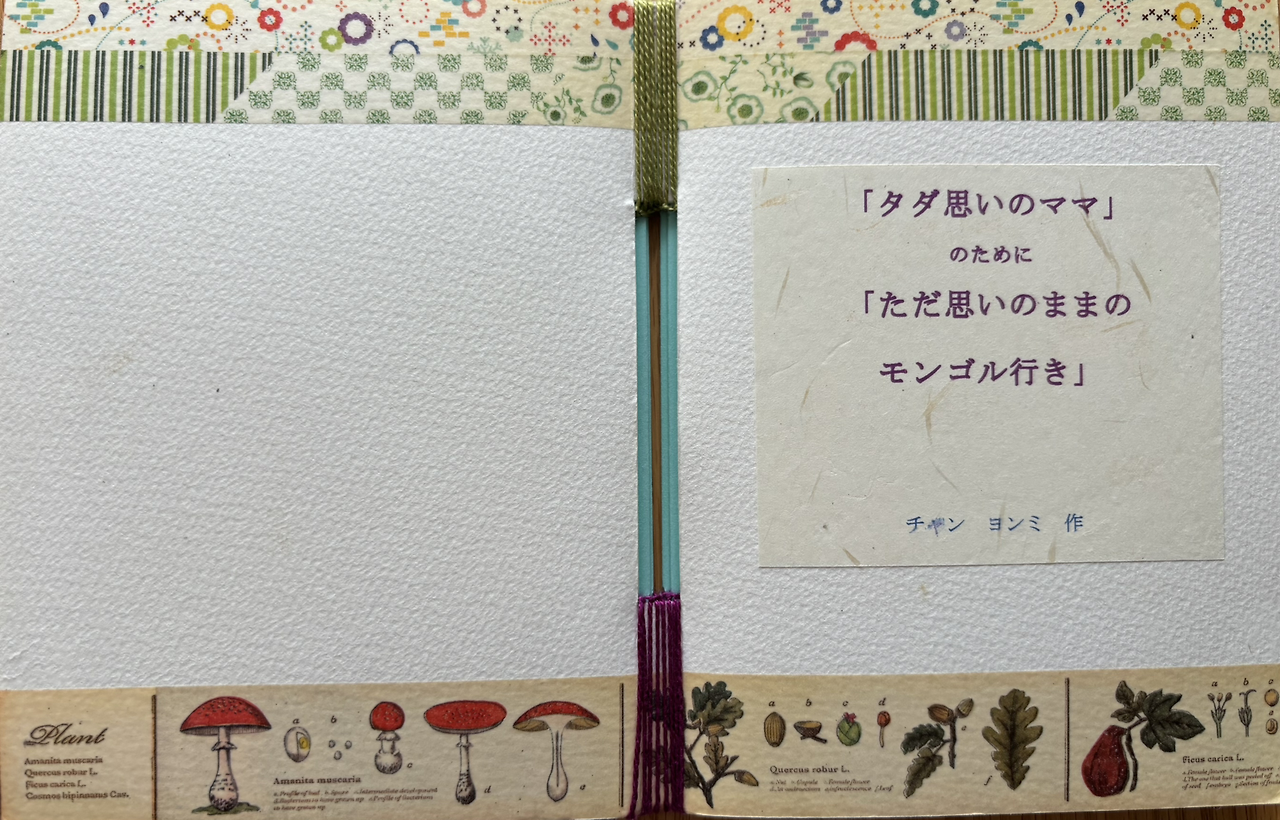 「タダ思いのママ」
のために
「ただ思いのままの
モンゴル行き」
チャン ヨンミ 作
Plant
Amanita muscaria
Quercus robur L.
Ficus carica L.
Cosmos bipinnatus Cav.
a b
c
d
e
Amanita muscaria
a b c d
e
f
Quercus robur L.
a b
Ficus carica L.